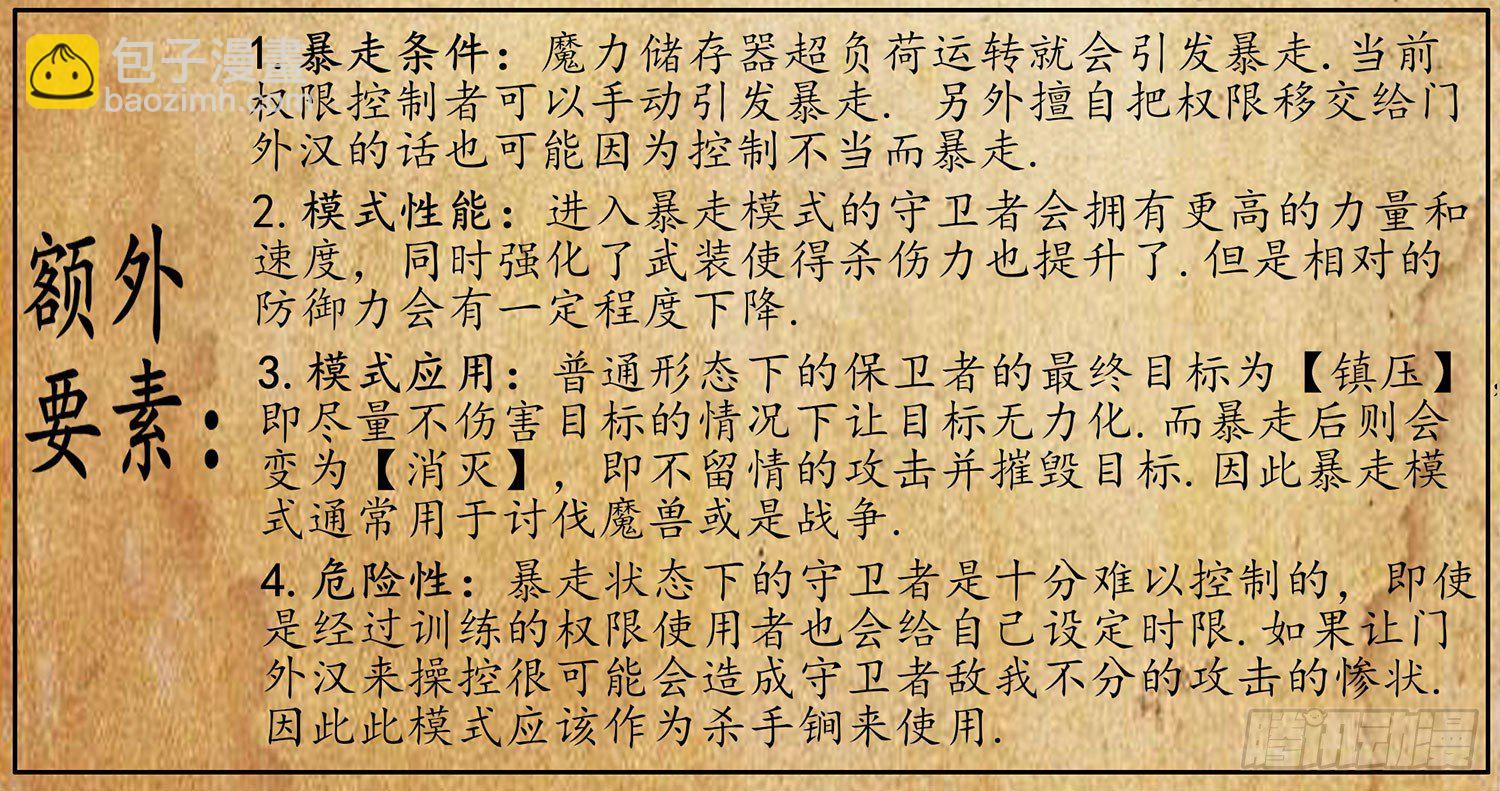 包子漫畫
baozimh.com
额外
要素：
1. 暴走条件：魔力储存器超负荷运转就会引发暴走.当前
权限控制者可以手动引发暴走. 另外擅自把权限移交给门
外汉的话也可能因为控制不当而暴走.
2. 模式性能：进入暴走模式的守卫者会拥有更高的力量和
速度，同时强化了武装使得杀伤力也提升了.但是相对的
防御力会有一定程度下降.
3. 模式应用：普通形态下的保卫者的最终目标为【镇压】，
即尽量不伤害目标的情况下让目标无力化.而暴走后则会
变为【消灭】，即不留情的攻击并摧毁目标.因此暴走模
式通常用于讨伐魔兽或是战争.
4. 危险性：暴走状态下的守卫者是十分难以控制的，即使
是经过训练的权限使用者也会给自己设定时限.如果让门
外汉来操控很可能会造成守卫者敌我不分的攻击的惨状.
因此此模式应该作为杀手锏来使用.
腾讯动漫